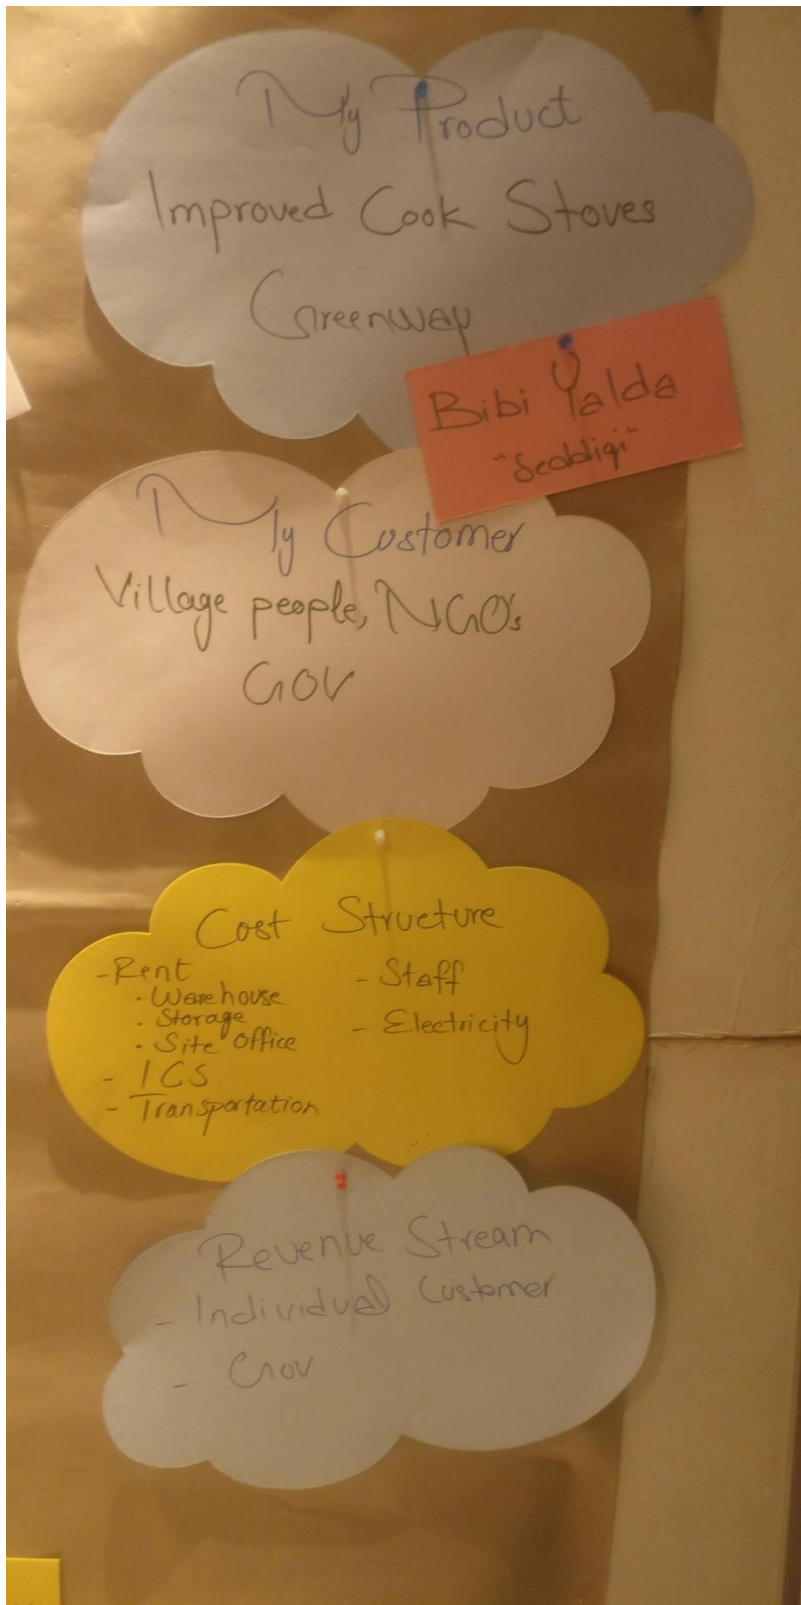 My Product
Improved Cook Stoves
Greenway
Bibi Yalda
"Seddiqi"
My Customer
Village people, NGO's
Gov
Cost Structure
- Rent
· Warehouse
· Storage
· Site Office
- ICS
- Transportation
- Staff
- Electricity
Revenue Stream
- Individual Customer
- Gov